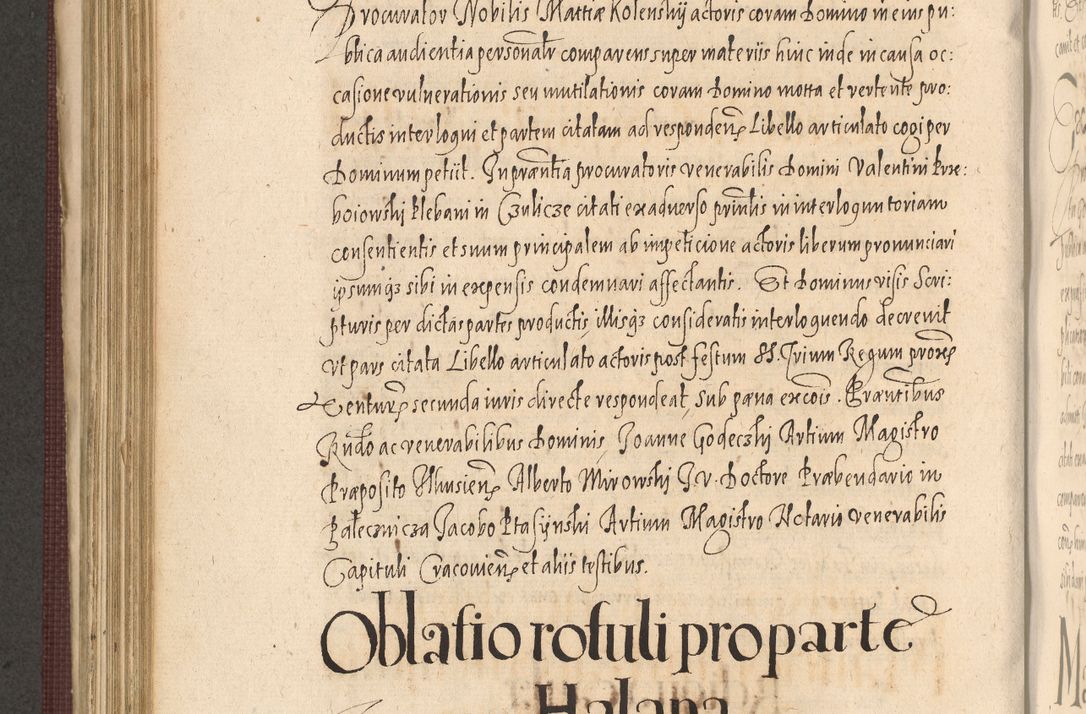 Procurator Nobilis Mattiæ Kolenskij actoris coram Domino in eius pu:
blica audientia personalr comparens super materiis hinc inde in causa oc:
casione vulnerationis seu mutilationis coram Domino motta et vertente pro:
ductis interloqui et partem citatam ad responden Libello articulato cogi per
Dominum petiit. In præntia procuratoris venerabilis Domini Valentini Prze:
boiowski Plebani in Czulicze citati ex adverso prīntis in interloqun toriam
consentientis et suum principalem ab impeticione actoris liberum pronunciari
ipsumqз sibi in expensis condemnari affectantis. Et Dominus visis Scri:
pturis per dictas partes productis, illisqз consideratis interloquendo decrevit
vt pars citata Libello articulato actoris post festum SS. Trium Regum prox
venturₑ secunda iuris directe respondeat, sub pæna excōis. Præntibus
Rndo ac venerabilibus Dominis, Joanne Godeczki Artium Magistro
Præposito Ilkusien Alberto Mirowski I.V. Doctore Præbendario in
Pałecznicza Jacobo Ptasijnski Artium Magistro Notario venerabilis
Capituli Cracovien et aliis testibus.
Oblatio rotuli pro parte
Halapa